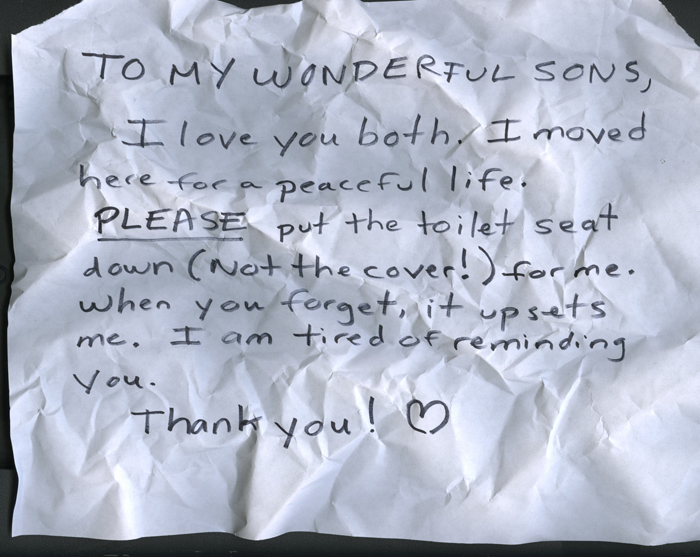 TO MY WONDERFUL SONS,
I love you both. I moved
here for a peaceful life.
PLEASE put the toilet seat
down (Not the cover!) for me.
When you forget, it upsets
me. I am tired of reminding
you.
Thank you! ♡